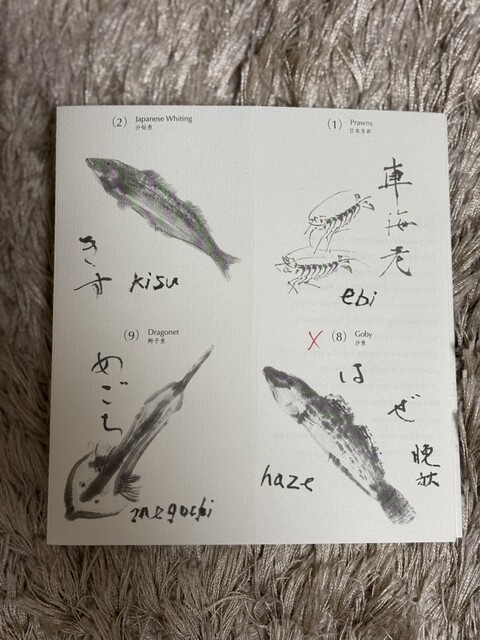 (2) Japanese Whiting
きす
kisu
(1) Prawns
車海老
ebi
(9) Dragonet
めごち
megochi
X (8) Goby
はぜ
晩秋
haze